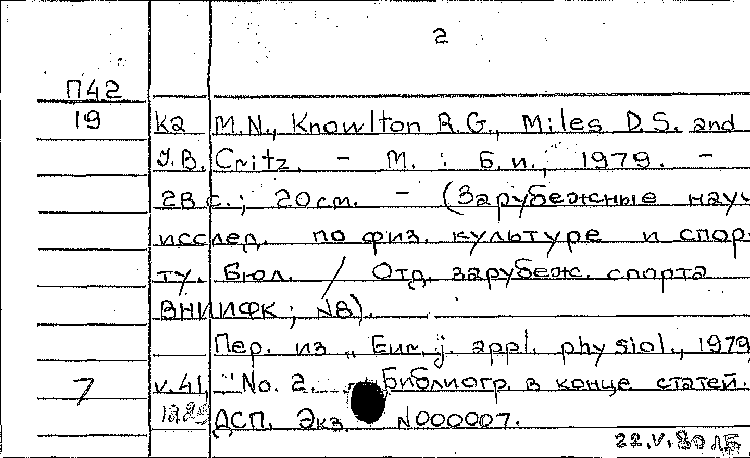 2
П42
19 ка M.N., Knowlton R.G., Miles D.S. and
J.B. Critz. - М. : Б.и., 1979. -
28 с.; 20 см. - (Зарубежные науч
исслед. по физ. культуре и спор-
ту. Бюл. / Отд. зарубеж. спорта
ВНИИФК ; N8).
Пер. из „Eur. j. appl. physiol., 1979,
7 v.41, No. 2. Библиогр. в конце статей.
ДСП. Экз. N000007.
22.V.80